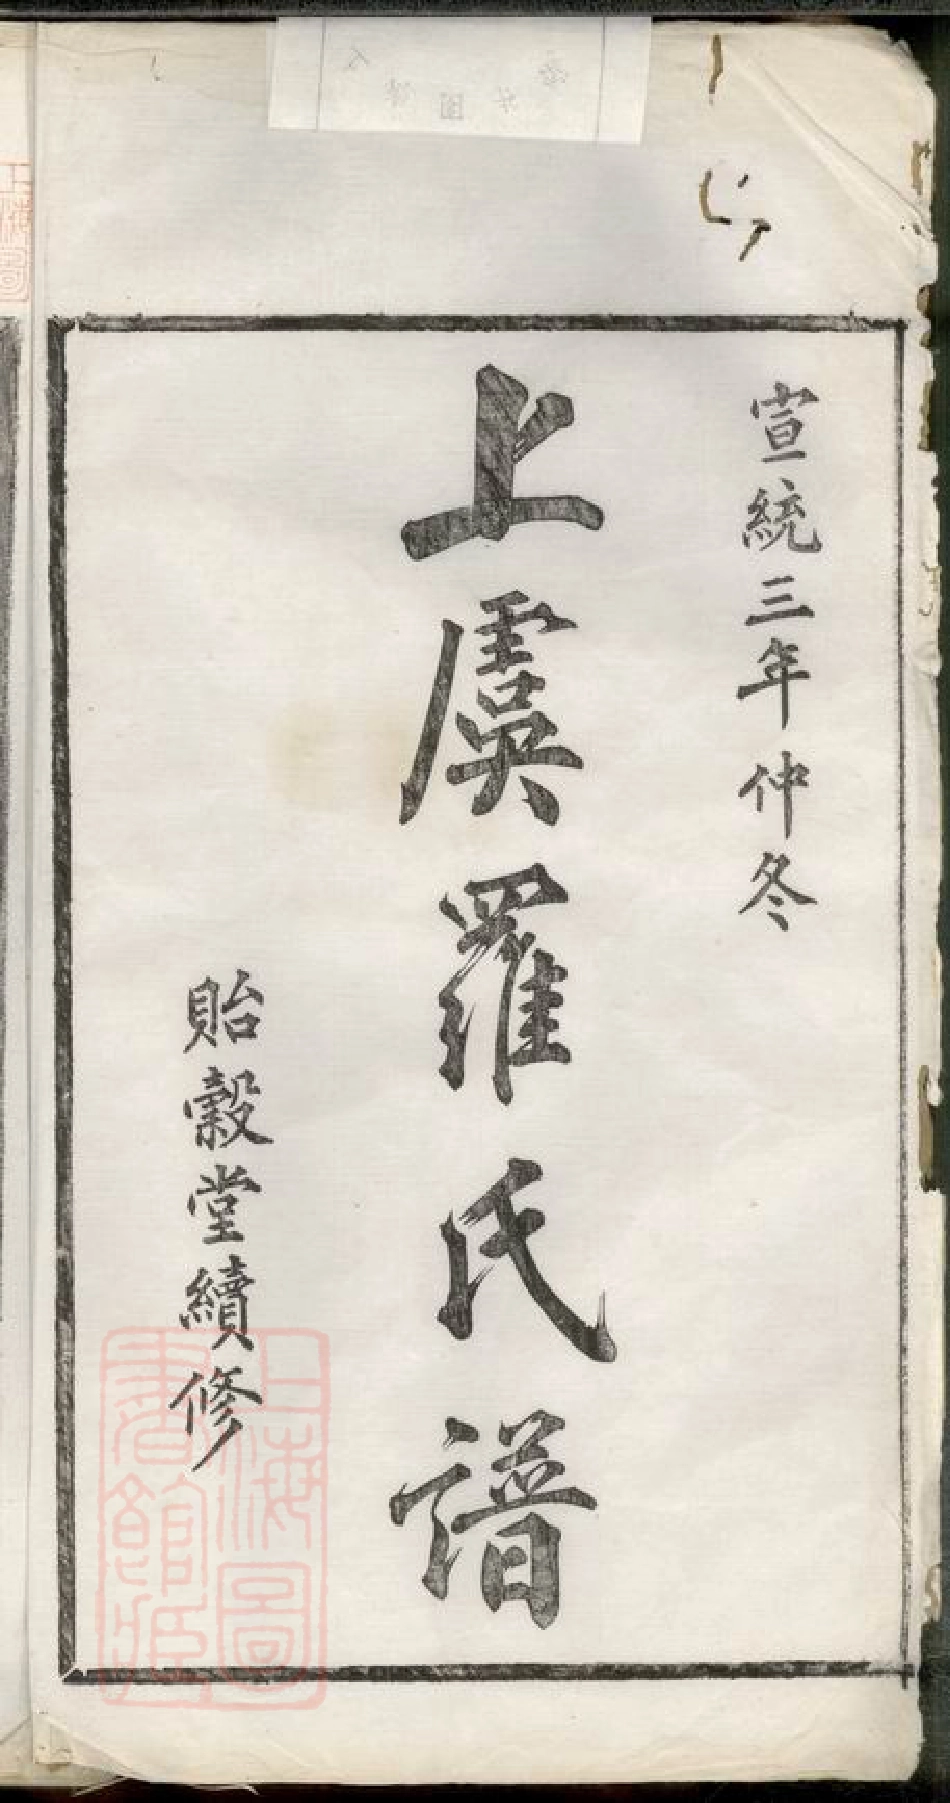 宣統三年仲冬
上虞羅氏譜
貽穀堂續修
上海圖書館藏